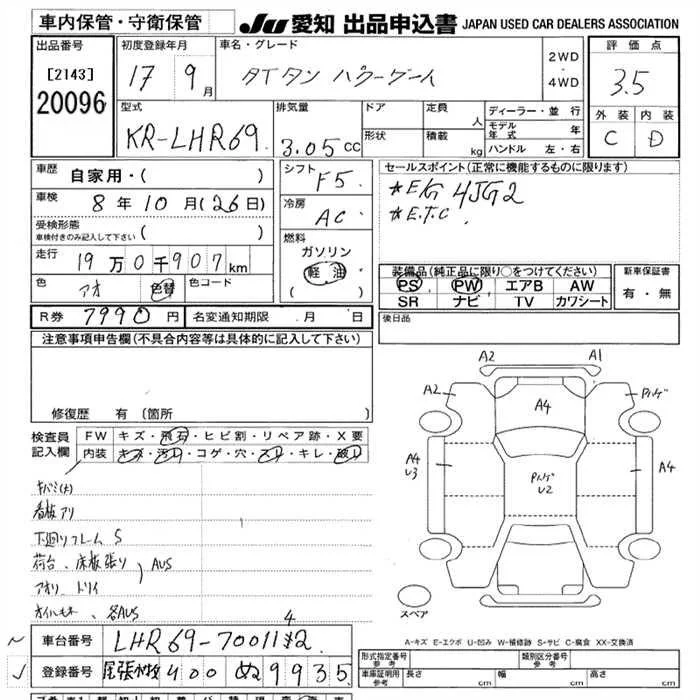 車内保管・守衛保管
JU 愛知 出品申込書 JAPAN USED CAR DEALERS ASSOCIATION
出品番号
[2143]
20096
初度登録年月
17 9月
車名・グレード
タイタン パワーゲート
2WD
・
4WD
評価点
3.5
外装 内装
C D
型式
KR-LHR69
排気量
3.05cc
ドア
形状
定員
人
積載
kg
ディーラー・並行
モデル年式 年
ハンドル 左・右
車歴
自家用・( )
車検
8年10月(26日)
受検形態
車検付きのみ記入して下さい
( )
走行
19万0千907km
色
アオ
色替
色コード
シフト
F5
冷房
AC
燃料
ガソリン
軽油
( )
セールスポイント(正常に機能するものに限ります)
*E/G 4JG2
*E.T.C
装備品(純正品に限り○をつけてください)
PS PW エアB AW
SR ナビ TV カワシート
新車保証書
有・無
R券 7990円 名変通知期限 月 日
後日品
注意事項申告欄(不具合内容等は具体的に記入して下さい)
修復歴 有 (箇所 )
検査員
記入欄
FW キズ・飛石・ヒビ割・リペア跡・X要
内装 キズ・汚レ・コゲ・穴・スレ・キレ・破レ
キバミ(大)
看板アリ
下廻リフレーム S
荷台、床板張り
アオリ
AUS
各AUS
A2 A1
A2 A4
A4
U3
U2
A4
スペア
A-キズ E-エクボ U-凹み W-補修跡 S-サビ C-腐食 XX-交換済
車台番号
登録番号 尾張小牧400 ぬ9935
形式指定番号
参考
類別区分番号
参考
車庫証明用
参考
長さ cm 幅 cm 高さ cm